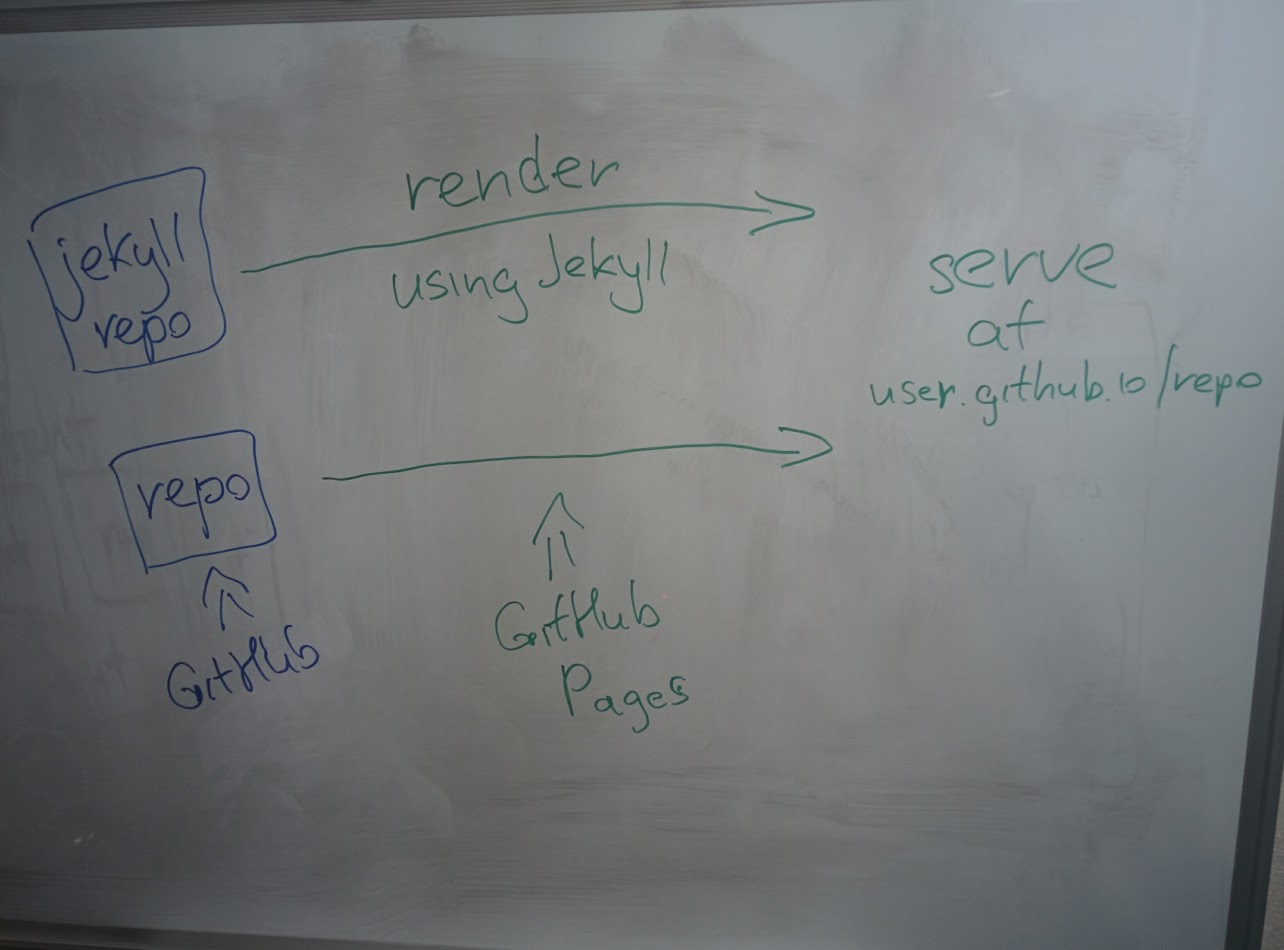 jekyll
repo
render
using Jekyll
serve
at
user.github.io/repo
repo
GitHub
GitHub
Pages